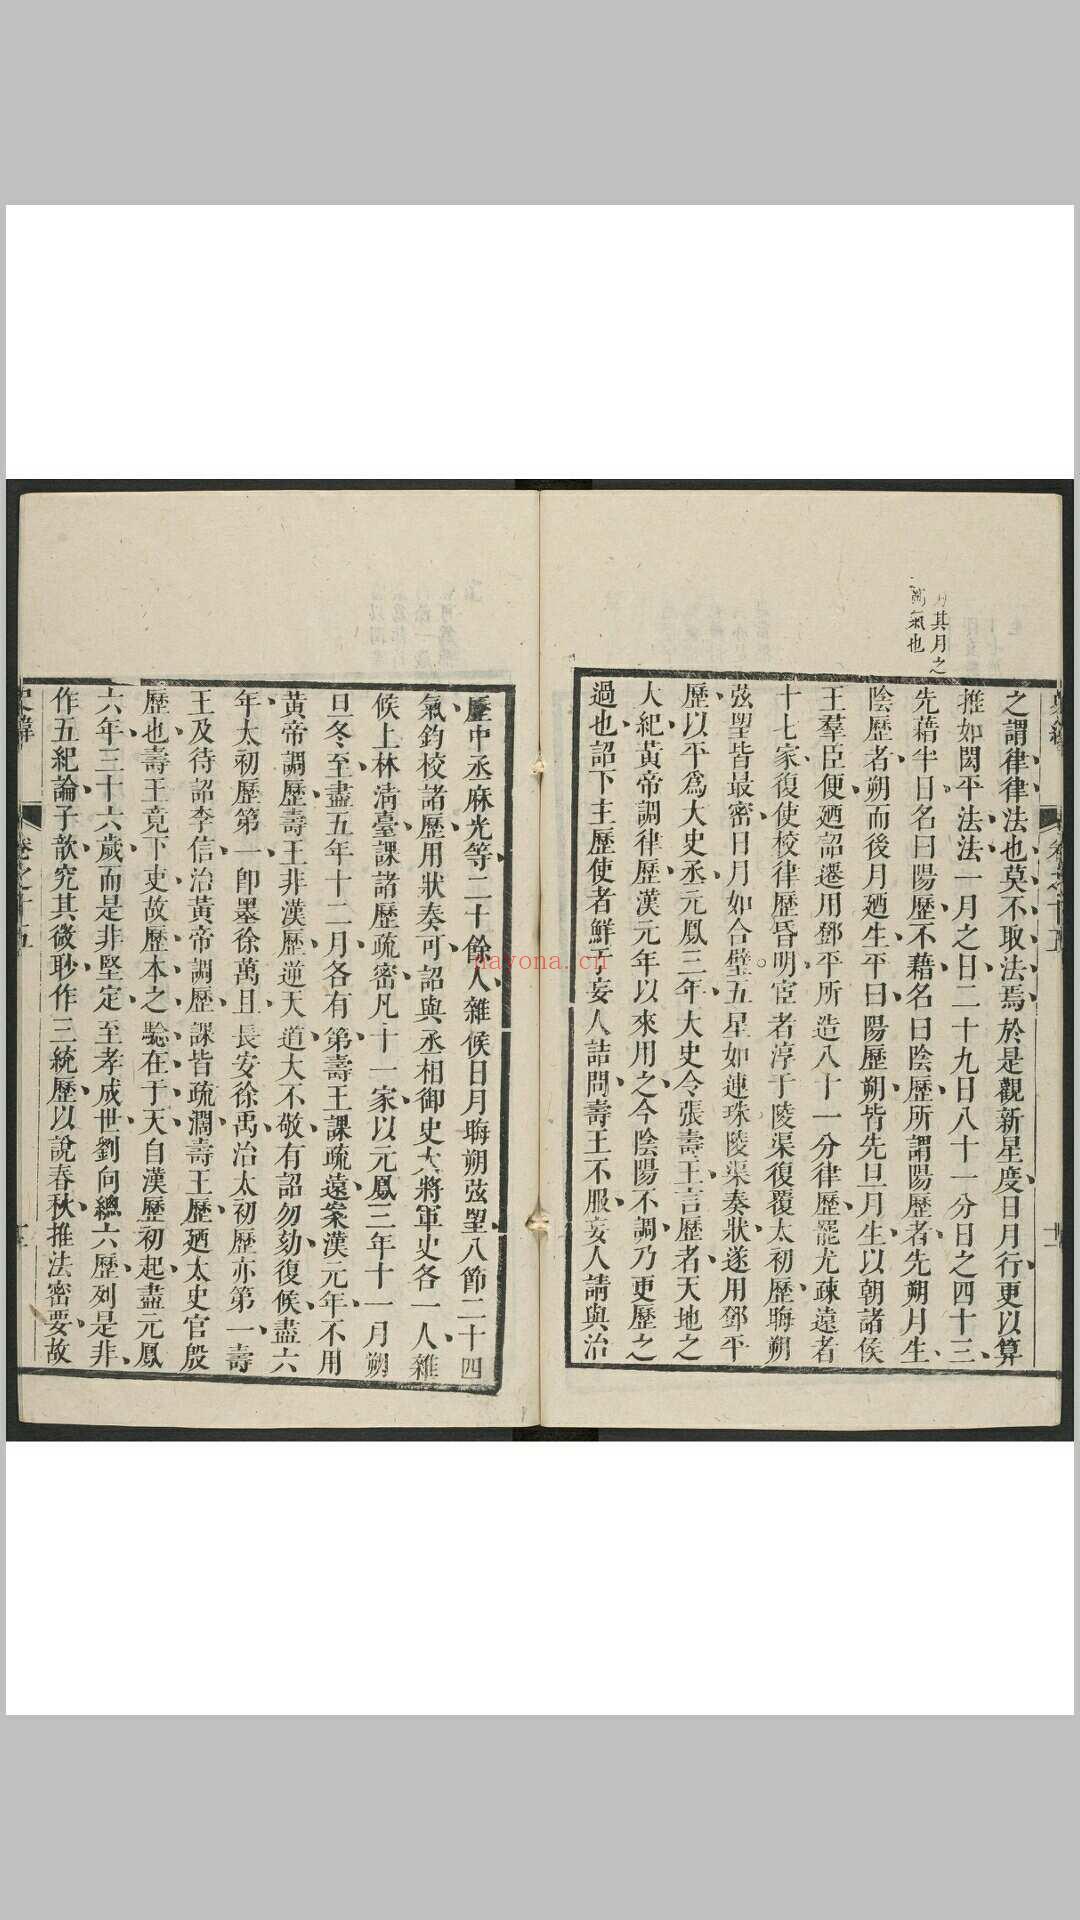 其月之
氣也
之謂律律法也莫不取法焉於是觀新星度日月行更以算
推如閎平法法一月之日二十九日八十一分日之四十三
先藉半日名曰陽歷不藉名曰陰歷所謂陽歷者先朔月生
陰歷者朔而後月廼生平曰陽歷朔皆先旦月生以朝諸侯
王羣臣便廼詔遷用鄧平所造八十一分律歷罷尤疎遠者
十七家復使校律歷昏明宦者淳于陵渠復覆太初歷晦朔
弦望皆最密日月如合璧五星如連珠陵渠奏狀遂用鄧平
歷以平爲大史丞元鳳三年大史令張壽王言歷者天地之
大紀黃帝調律歷漢元年以來用之今陰陽不調乃更歷之
過也詔下主歷使者鮮于妄人詰問壽王不服妄人請與治
歷中丞麻光等二十餘人雜候日月晦朔弦望八節二十四
氣鈞校諸歷用狀奏可詔與丞相御史大將軍史各一人雜
候上林清臺課諸歷疏密凡十一家以元鳳三年十一月朔
旦冬至盡五年十二月各有第壽王課疏遠案漢元年不用
黃帝調歷壽王非漢歷逆天道大不敬有詔勿劾復候盡六
年太初歷第一卽墨徐萬且長安徐禹治太初歷亦第一壽
王及待詔李信治黃帝調歷課皆疏濶壽王歷廼太史官殷
歷也壽王竟下吏故歷本之驗在于天自漢歷初起盡元鳳
六年三十六歲而是非堅定至孝成世劉向總六歷列是非
作五紀論子歆究其微眇作三統歷以說春秋推法密要故
卷之十五
nayona.cn